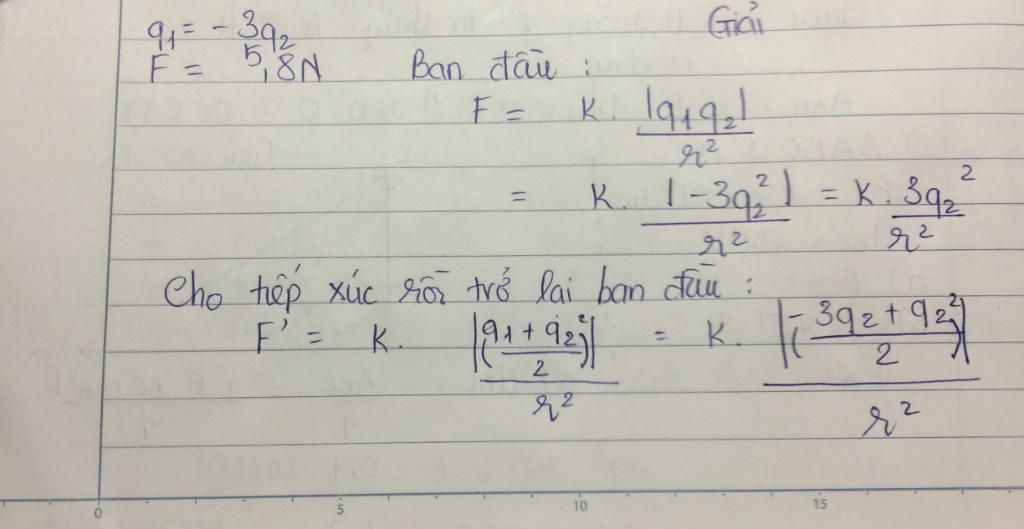 Giải
q1 = - 3q2
F = 5,8N Ban đầu :
F = K. |q1q2| / r²
= K. |-3q2²| / r² = K. 3q2² / r²
Cho tiếp xúc rồi trở lại ban đầu :
F' = K. |((q1 + q2)/2)²| / r² = K. |((-3q2 + q2)/2)²| / r²
0 5 10 15